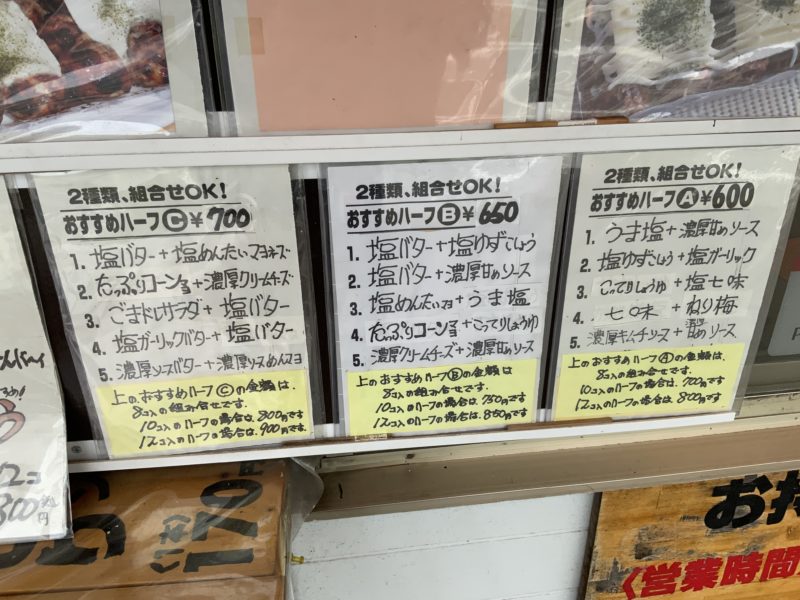 2種類、組合せOK!
おすすめハーフⒸ¥700
1. 塩バター+塩めんたいマヨネーズ
2. たっぷりコーン+濃厚クリームチーズ
3. ごまドレサラダ+塩バター
4. 塩ガーリックバター+塩バター
5. 濃厚ソースバター+濃厚ソースめんマヨ
上のおすすめハーフⒸの金額は、
8コ入の組み合せです。
10コ入のハーフの場合は、800円です
12コ入のハーフの場合は、900円です。
2種類、組合せOK!
おすすめハーフⒷ¥650
1. 塩バター+塩ゆずこしょう
2. 塩バター+濃厚甘めソース
3. 塩めんたいマヨ+うま塩
4. たっぷりコーン+こってりしょうゆ
5. 濃厚クリームチーズ+濃厚甘めソース
上のおすすめハーフⒷの金額は
8コ入の組み合せです。
10コ入のハーフの場合は、750円です
12コ入のハーフの場合は、850円です
2種類、組合せOK!
おすすめハーフⒶ¥600
1. うま塩+濃厚甘めソース
2. 塩ゆずこしょう+塩ガーリック
3. こってりしょうゆ+塩七味
4. 七味+ねり梅
5. 濃厚キムチソース+濃厚甘めソース
上のおすすめハーフⒶの金額は、
8コ入の組み合せです。
10コ入のハーフの場合は、700円です
12コ入のハーフの場合は、800円です
12コ
800円
170円
お持
〈営業時間